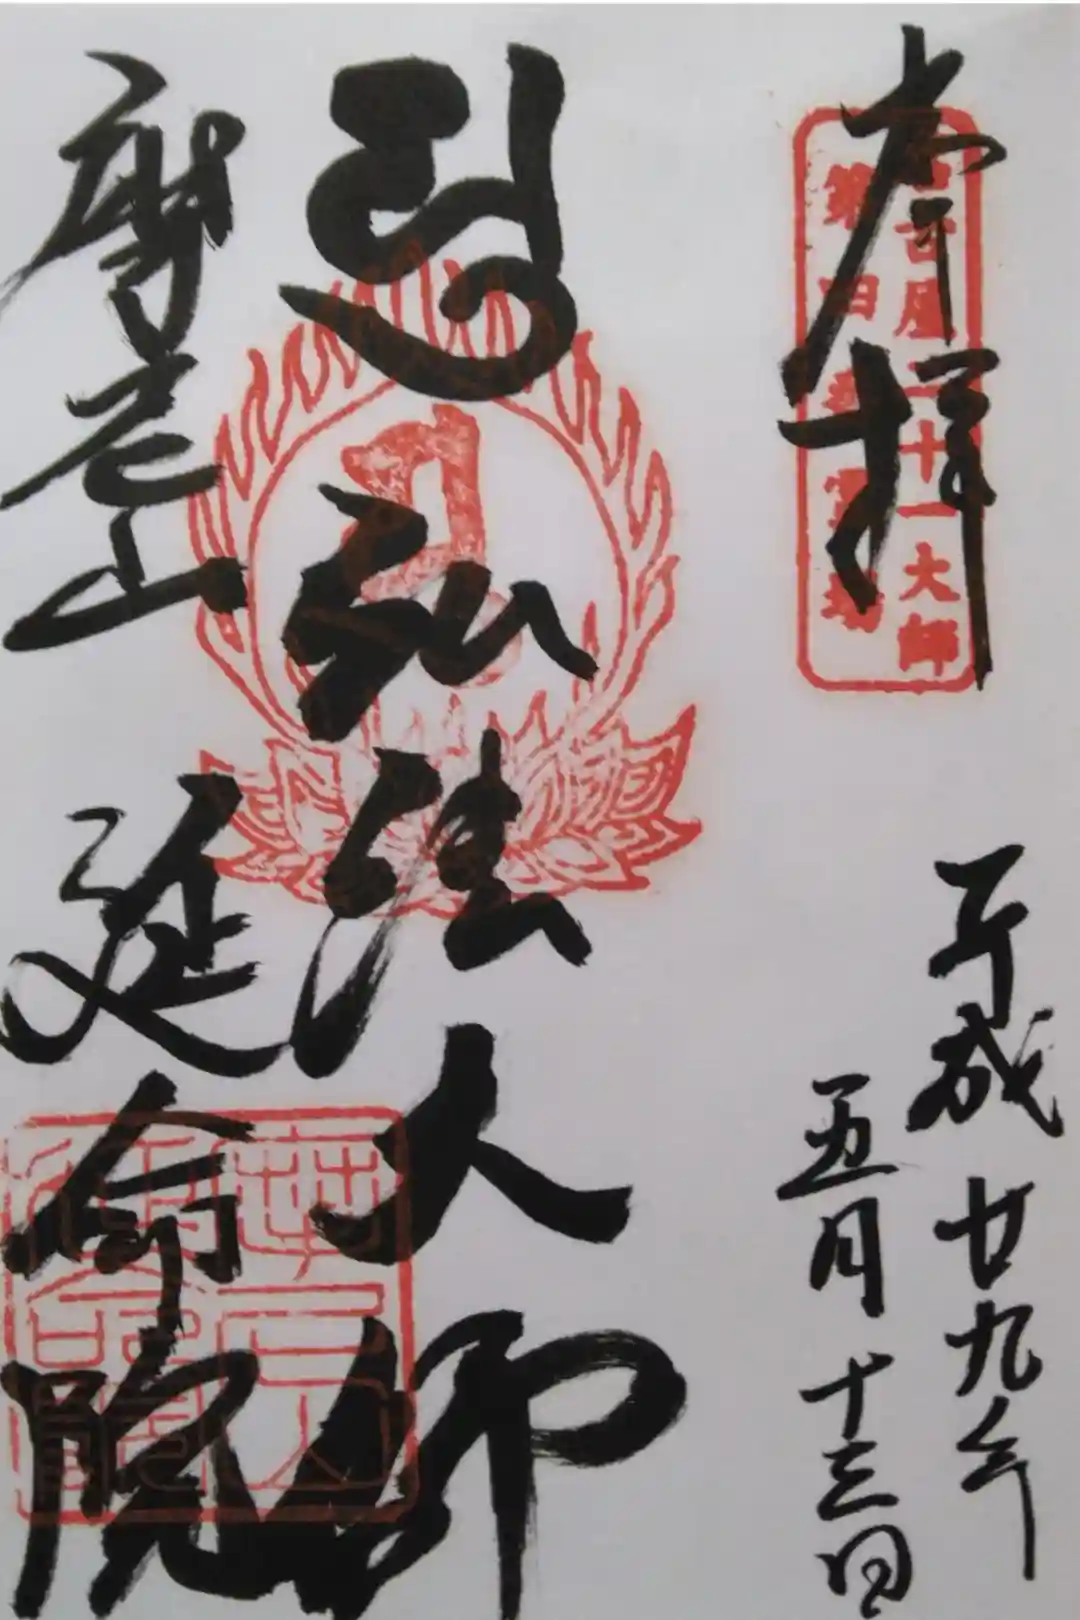 奉拝
名古屋二十一大師
第四番霊場
平成廿九年
五月十三日
弘法大師
摩尼山 延命院